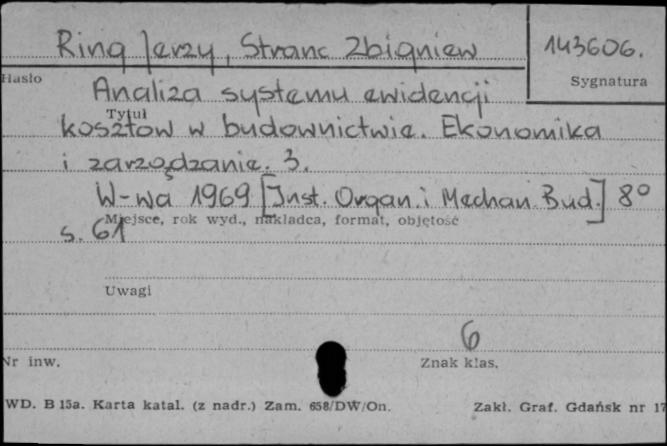 Ring Jerzy, Stranc Zbigniew
143606.
Hasło
Sygnatura
Analiza systemu ewidencji
Tytuł
kosztów w budownictwie. Ekonomika
i zarządzanie. 3.
W-wa 1969 [Inst. Organ. i Mechan. Bud.] 8°
Miejsce, rok wyd., nakładca, format, objętość
s. 61
Uwagi
6
Nr inw.
Znak klas.
WD. B 15a. Karta katal. (z nadr.) Zam. 658/DW/On.
Zakł. Graf. Gdańsk nr 17